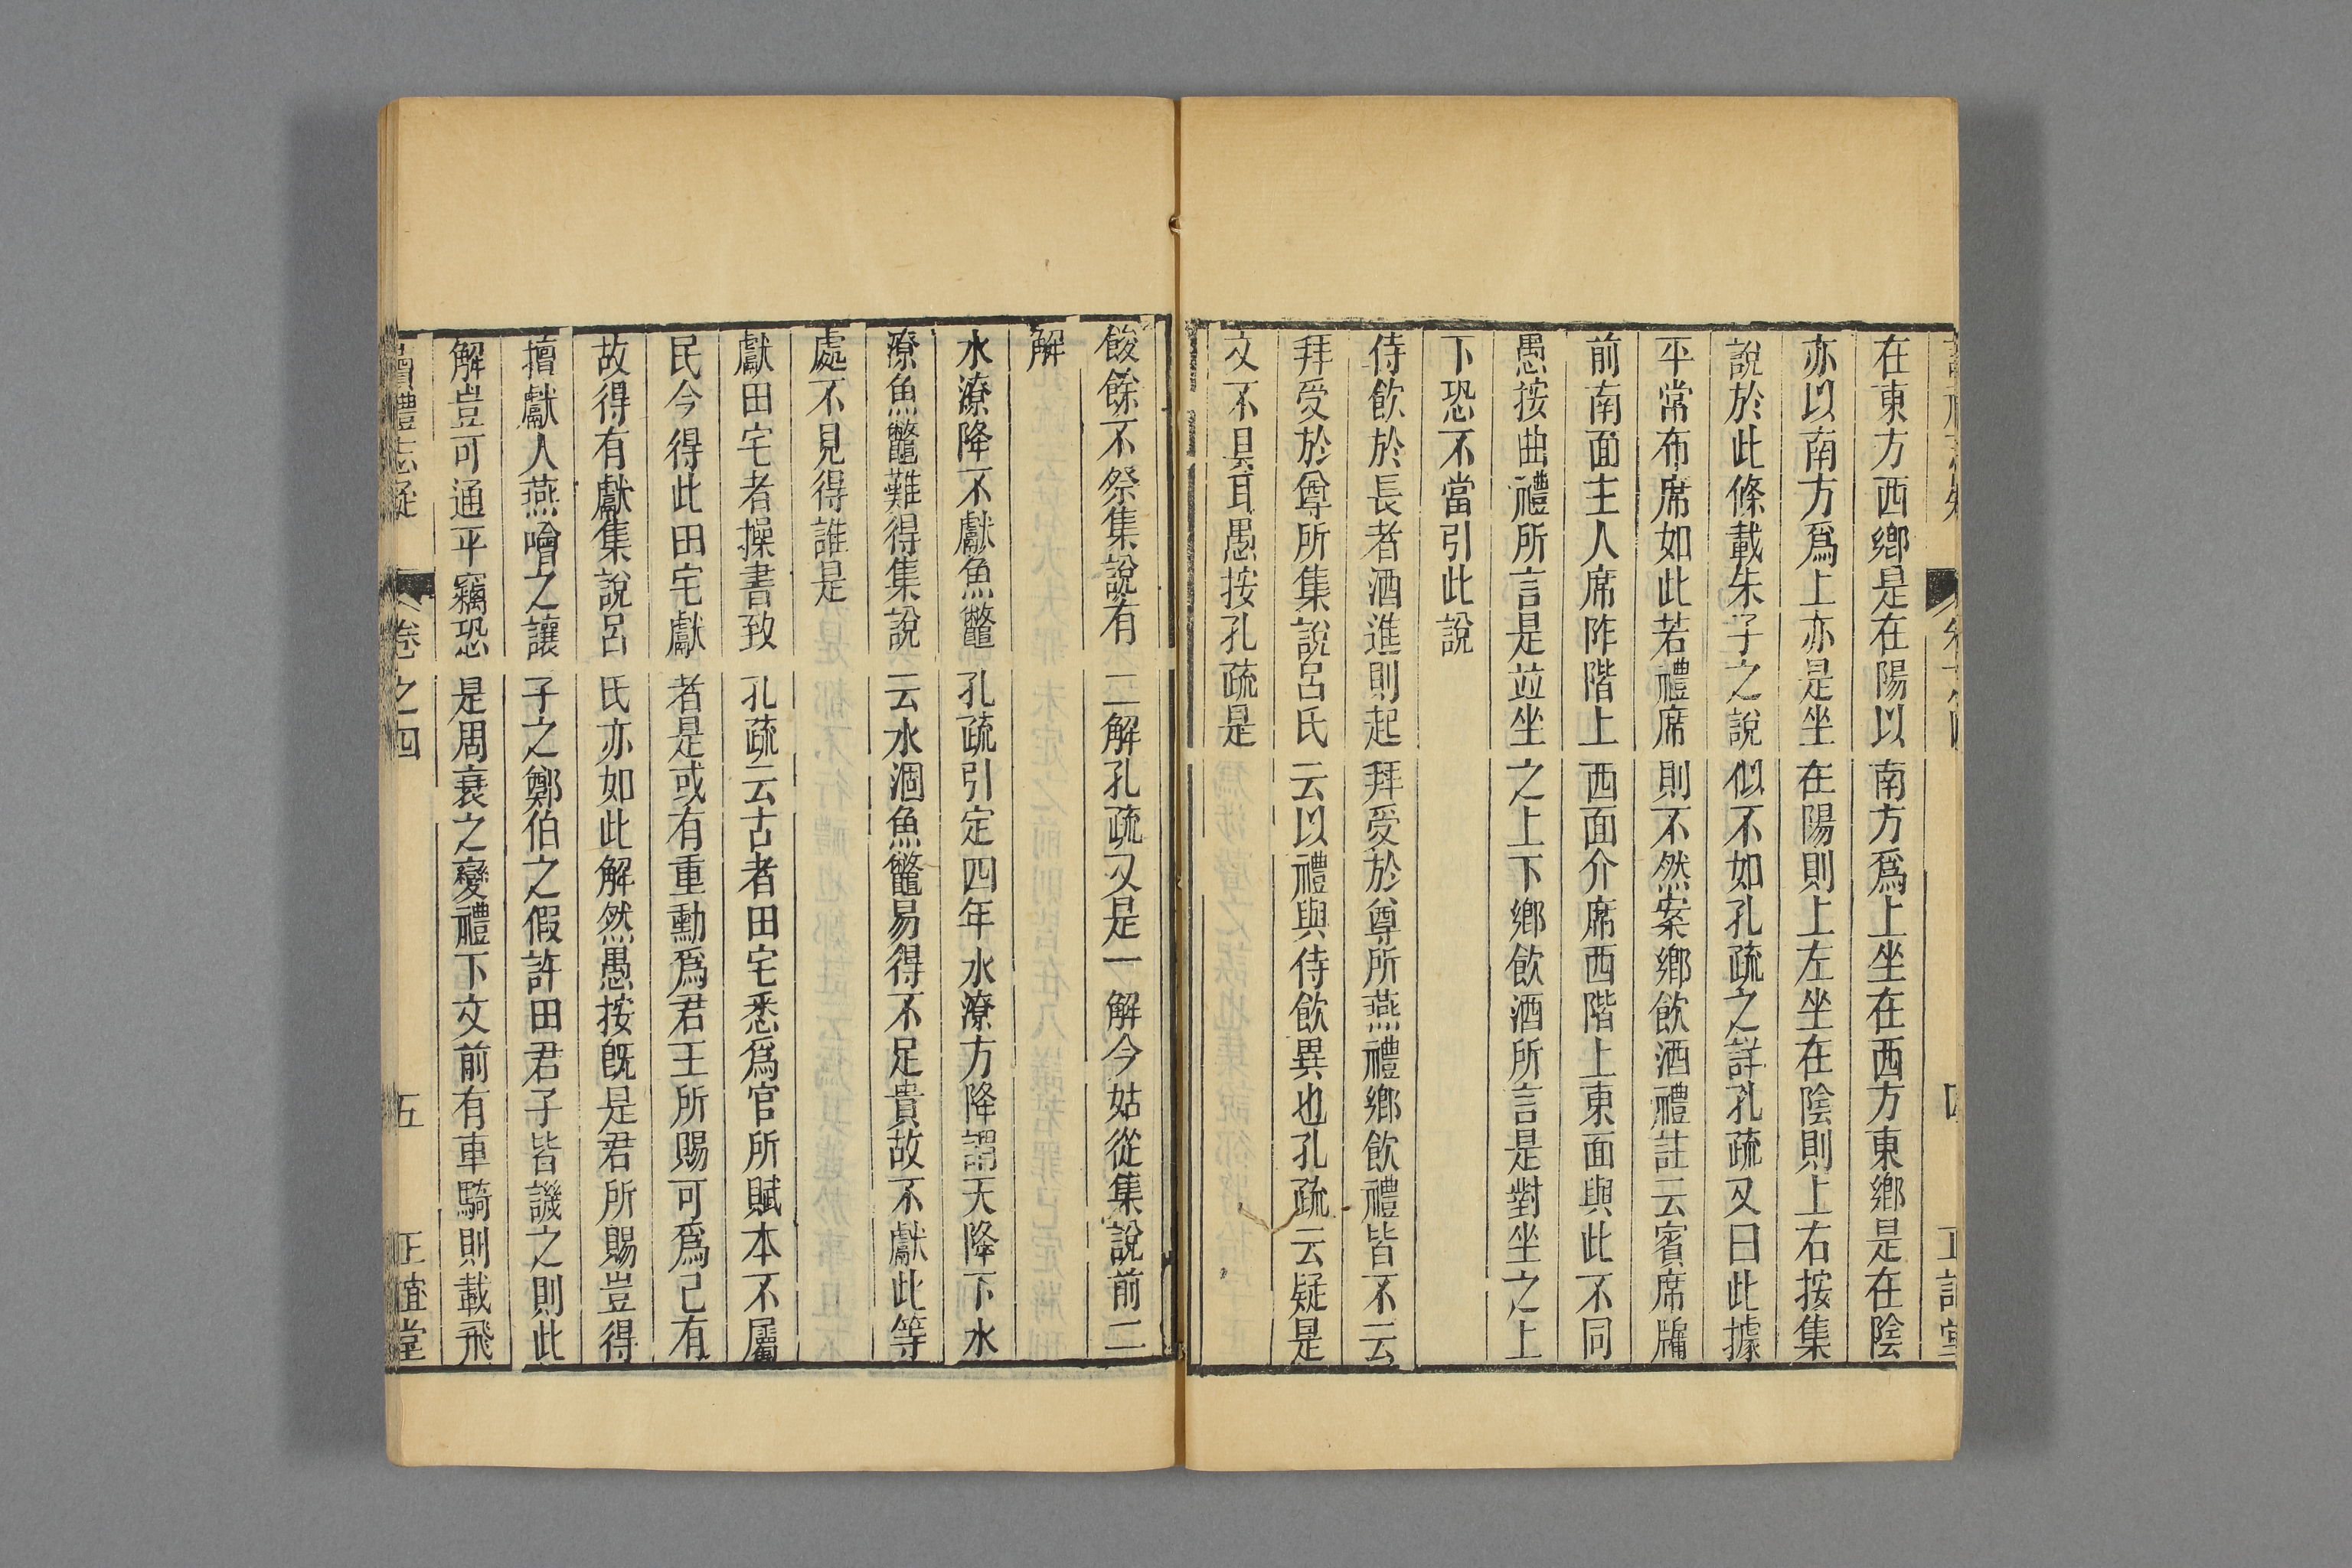 在東方西鄉是在陽以南方爲上坐在西方東鄉是在陰
亦以南方爲上亦是坐在陽則上左坐在陰則上右按集
說於此條載朱子之說似不如孔疏之詳孔疏又曰此據
平常布席如此若禮席則不然案鄉飲酒禮註云賓席牖
前南面主人席阼階上西面介席西階上東面與此不同
愚按曲禮所言是竝坐之上下鄉飲酒所言是對坐之上
下恐不當引此說
侍飲於長者酒進則起拜受於尊所燕禮鄉飲禮皆不云
拜受於尊所集說呂氏云以禮與侍飲異也孔疏云疑是
文不具耳愚按孔疏是
餕餘不祭集說有二解孔疏又是一解今姑從集說前二
解
水潦降不獻魚鼈孔疏引定四年水潦方降謂天降下水
潦魚鼈難得集說云水涸魚鼈易得不足貴故不獻此等
處不見得誰是
獻田宅者操書致孔疏云古者田宅悉爲官所賦本不屬
民今得此田宅獻者是或有重勳爲君王所賜可爲己有
故得有獻集說呂氏亦如此解然愚按旣是君所賜豈得
擅獻人燕噲之讓子之鄭伯之假許田君子皆譏之則此
解豈可通乎竊恐是周衰之變禮下文前有車騎則載飛
讀禮志疑 卷之四 五 正誼堂